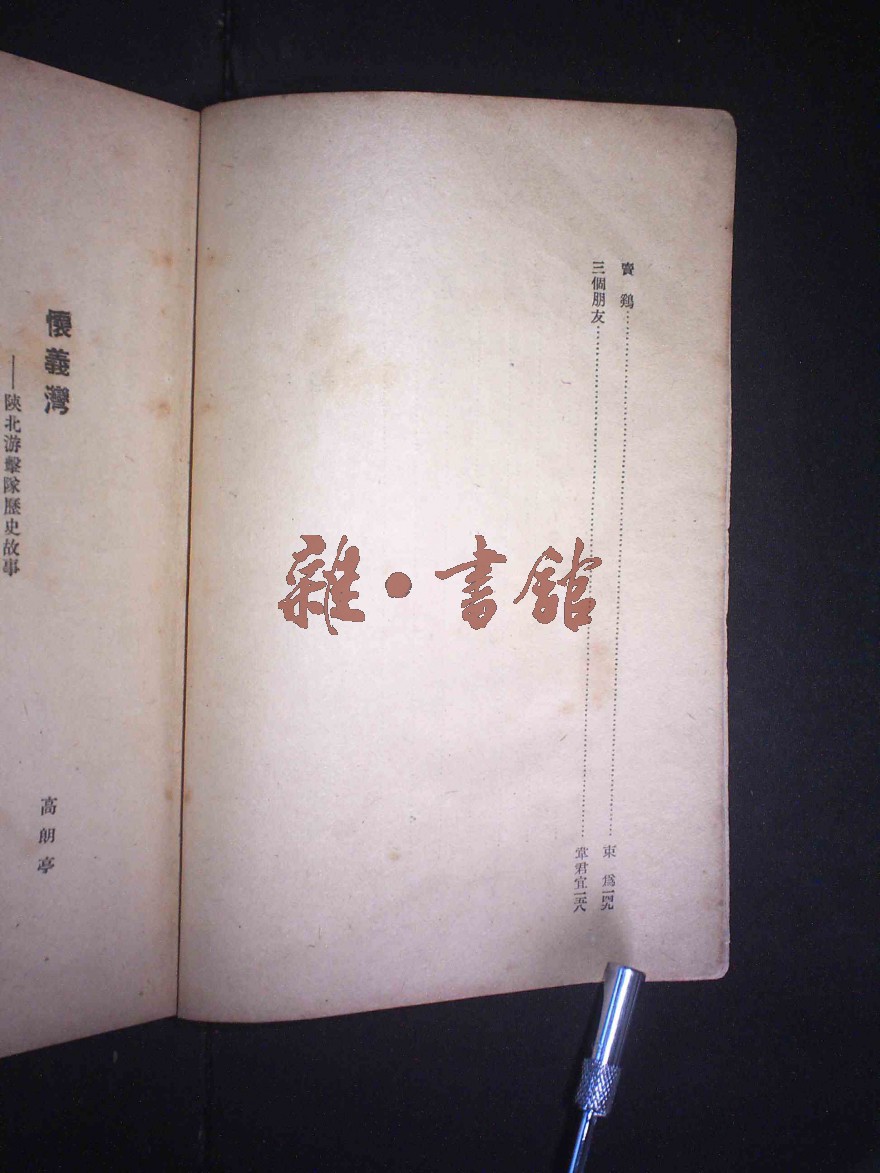 賣鷄……束爲一四九
三個朋友……韋君宜一五八
懷義灣
——陝北游擊隊歷史故事
高朗亭
雜·書館